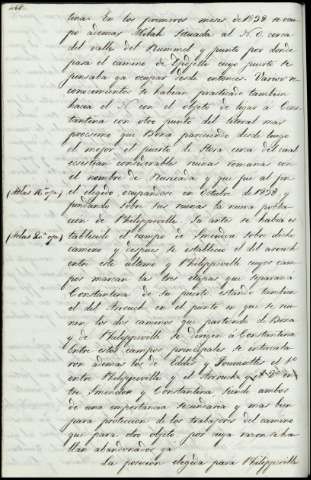 260.
tina. En los primeros meses de 1838 se ocu-
pó ademas Milah situada al N.O. cerca
del valle del Rummel y punto por donde
para el camino de Djidjelli cuyo puerto se
pensaba ya ocupar desde entonces. Varios re-
conocimientos se habian practicado tambien
hacia el N. con el objeto de ligar a Cons-
tantina con otro punto del litoral mas
procsimo que Bona pareciendo desde luego
el mejor el puerto de Stora cerca del cual
ecsistian considerables ruinas romanas con
el nombre de Rusicada y que fue al fin
(Atlas 16ª opª)
el elegido ocupandose en Octubre de 1838 y
fundando sobre sus ruinas la nueva pobla-
cion de Philippeville. Ya antes se habia es-
(Atlas 20ª opª)
tablecido el campo de Smendou sobre dicho
camino y despues se estableció el del Arrouch
entre este ultimo y Philippeville cuyos cam-
pos marcan las tres etapas que separan a
Constantina de su puerto estando tambien
el del Arrouch en el punto en que se reu-
nen los dos caminos que partiendo de Bona
y de Philippeville se dirigen á Constantina
Entre estos campos principales se intercala-
ron ademas los de Eddis y Toumiettes el 1º
entre Philippeville y el Arrouch y el 2º en
tre Smendou y Constantina siendo ambos
de una importancia secundaria y mas bien
para proteccion de los trabajos del camino
que para otro objeto por cuya razon se ha-
llan abandonados ya.
La posicion elegida para Philippeville